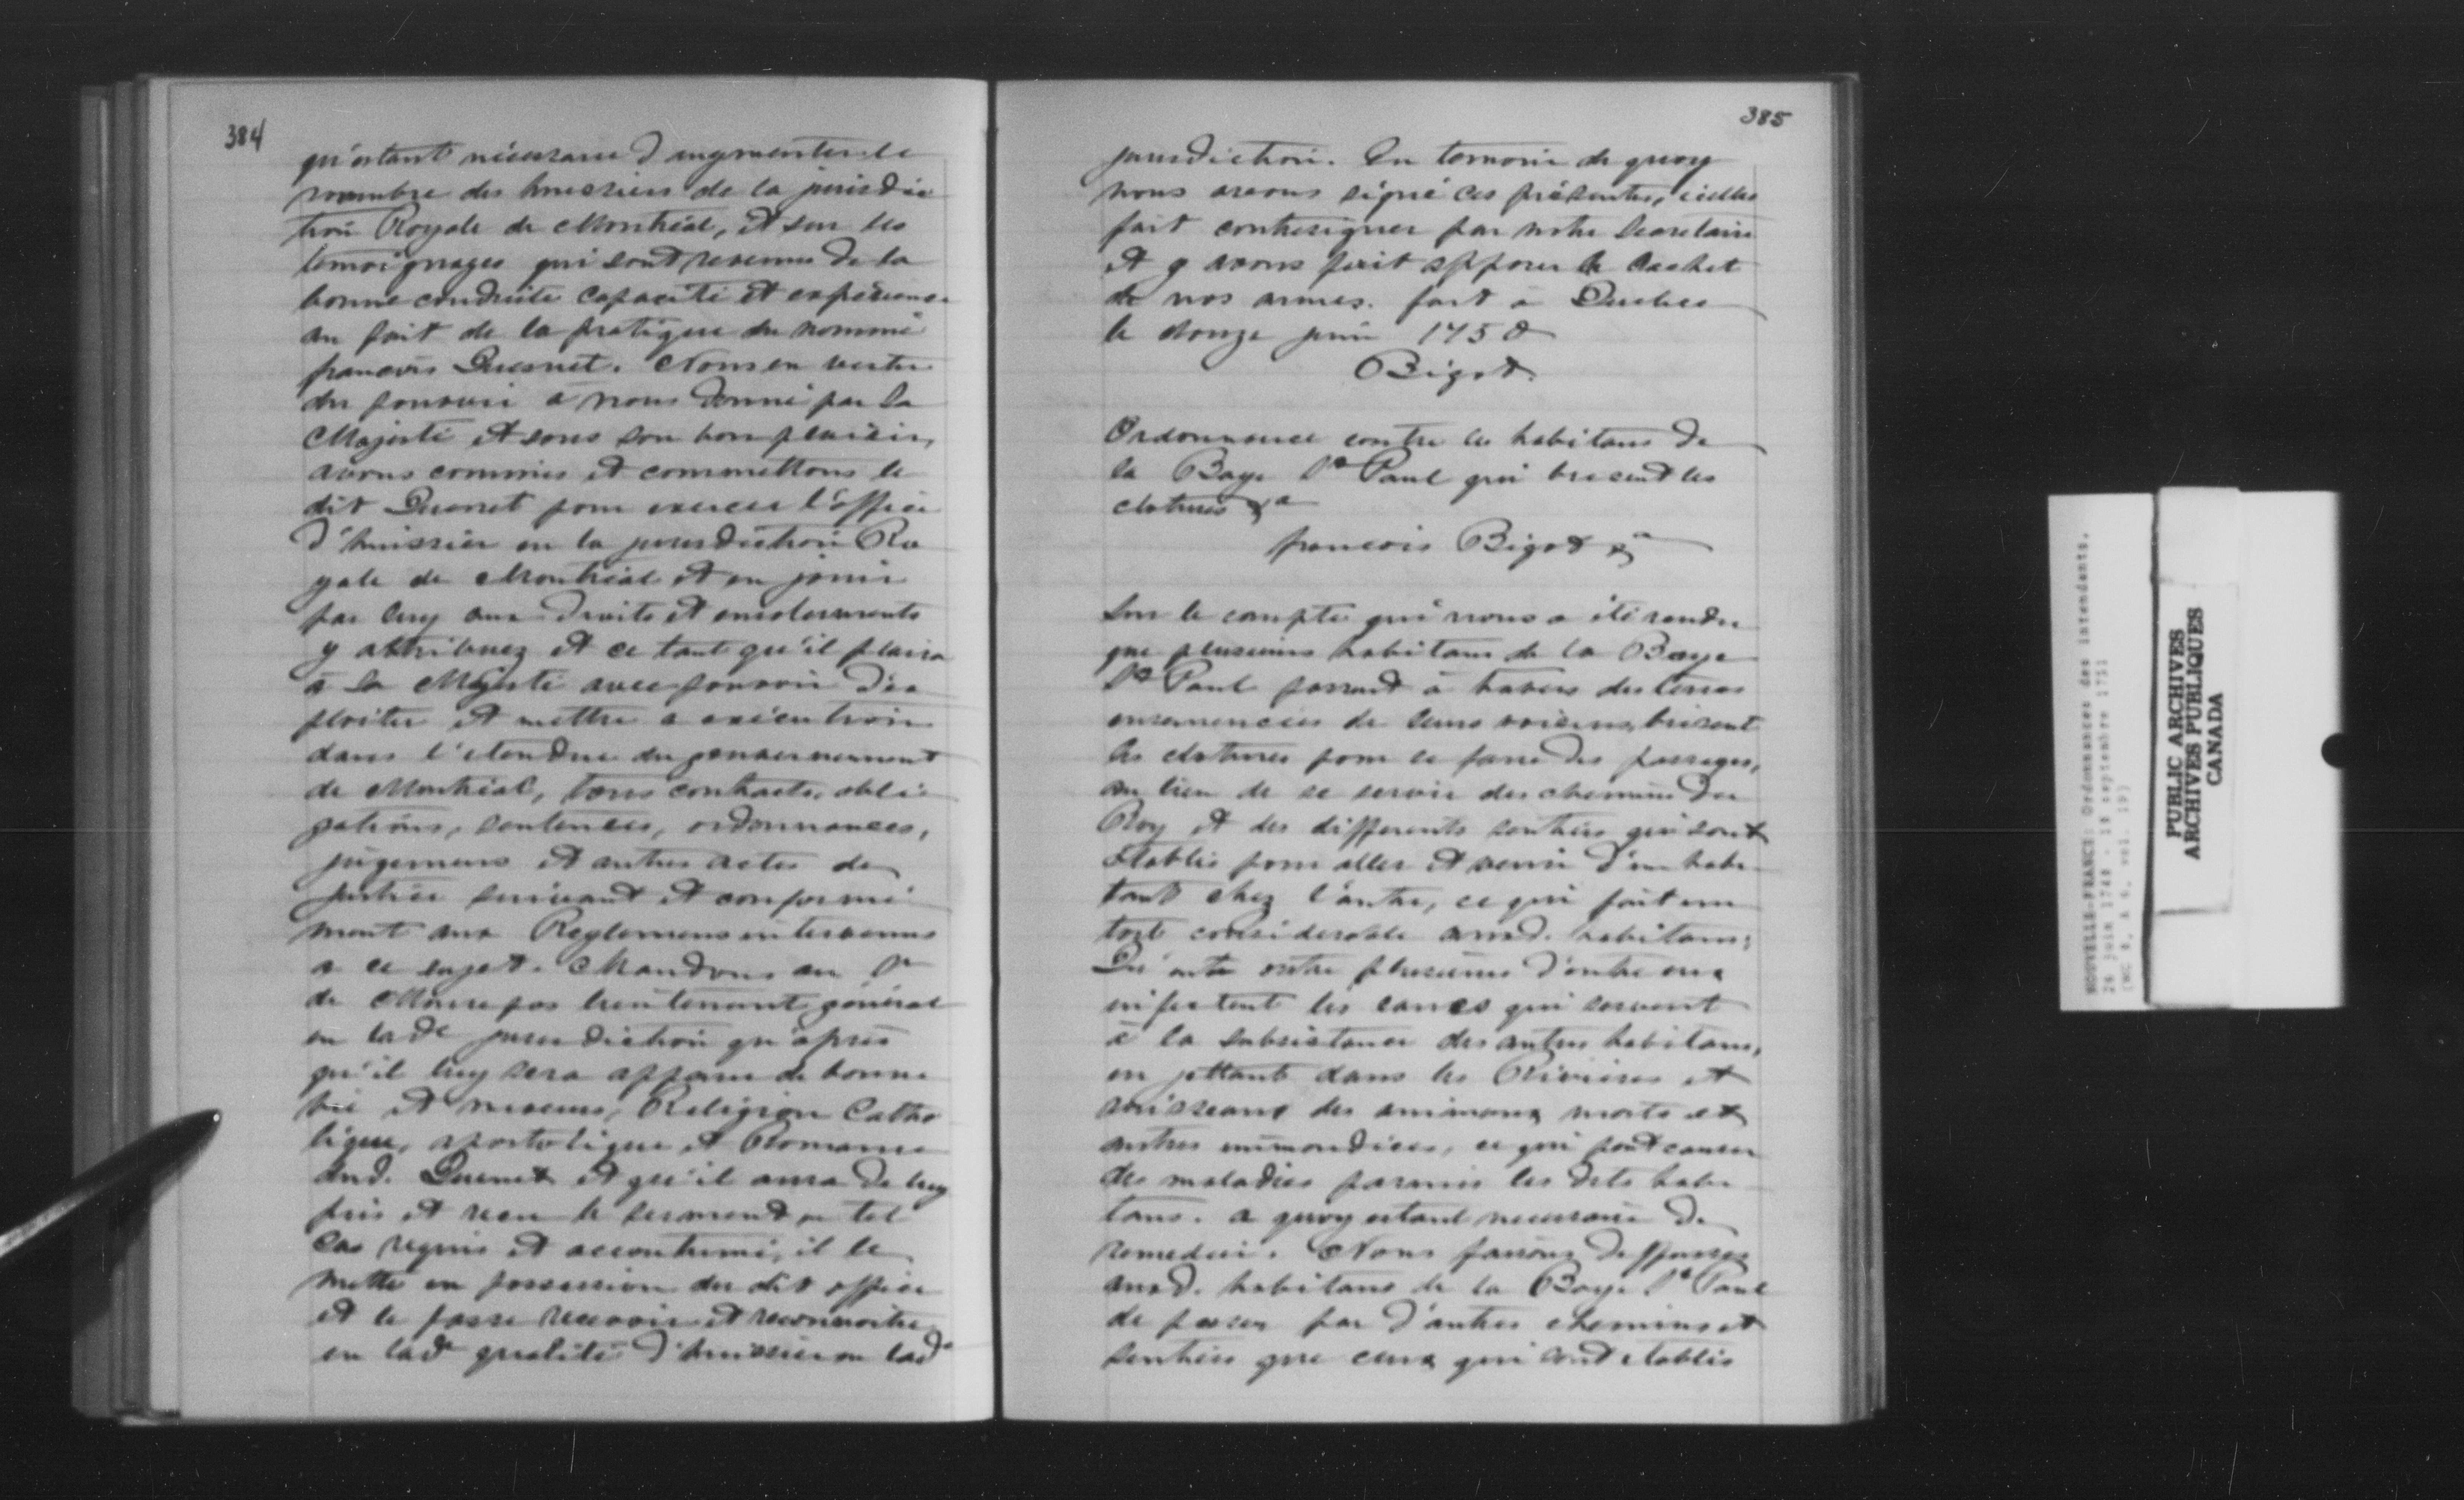 384
qu'estant nécessaire d'augmenter le
nombre des huissiers de la jurisdic
tion Royale de Montréal, et sur les
temoignages qui sont revenus de la
bonne conduite capacité et expérience
au fait de la pratique du nommé
francois Quesnet. Nous en vertu
du pouvoir à nous donné par Sa
Majesté et sous son bon plaisir,
avons commis et commettons le
dit Quesnet pour exercer l'office
d'huissier en la jurisdiction Ro
yale de Montréal et en jouir
par luy aux droits et emoluments
y attribuez et ce tant qu'il plaira
à Sa Majesté avec pouvoir d'ex
ploiter et mettre a exécution
dans l'etendue du gouvernement
de Montréal, tous contracts, obli
gations, sentences, ordonnances,
jugemens et autres actes de
justice suivant et conformé
ment aux Reglemens intervenus
a ce sujet. Mandons au Sr
de Monrepos lieutenant général
en lade jurisdiction qu'après
qu'il luy sera apparu de bonne
vie et moeurs, Religion Catho
lique, apostolique et Romaine
dud. Quesnet et qu'il aura de luy
pris et receu le serment en tel
cas requis et accoutumé, il le
mette en possession du dit office
et le fasse recevoir et reconnoitre
en lade qualité d'huissier en lade
385
jurisdiction. En temoin de quoy
nous avons signé ces présentes, icelles
fait contresigner par notre Secretaire
et y avons fait apposer le cachet
de nos armes. fait à Quebec
le douze juin 1750
Bigot.
Ordonnance contre les habitans de
la Baye St Paul qui brisent les
clotures &a
francois Bigot &a
Sur le compte qui nous a été rendu
que plusieurs habitans de la Baye
St Paul passant à travers des terres
ensemencées de leurs voisins, brisent
les clotures pour ce faire des passages,
au lieu de se servir des chemins du
Roy et des differents sentiers qui sont
établis pour aller et venir d'un habi
tant chez l'autre, ce qui fait un
tort considerable auxd. habitans;
Qu'outre plusieurs d'entre eux
infectent les eaues qui servent
à la subsistance des autres habitans,
en jettant dans les Rivieres et
ruisseaux des animaux morts et
autres immondices, ce qui peut causer
des maladies parmis les dits habi
tans. a quoy estant necessaire de
remedier. Nous faisons deffenses
auxd. habitans de la Baye St Paul
de passer par d'autres chemins et
sentiers que ceux qui sont etablis
NOUVELLE-FRANCE: Ordonnances des intendants.
PUBLIC ARCHIVES
ARCHIVES PUBLIQUES
CANADA